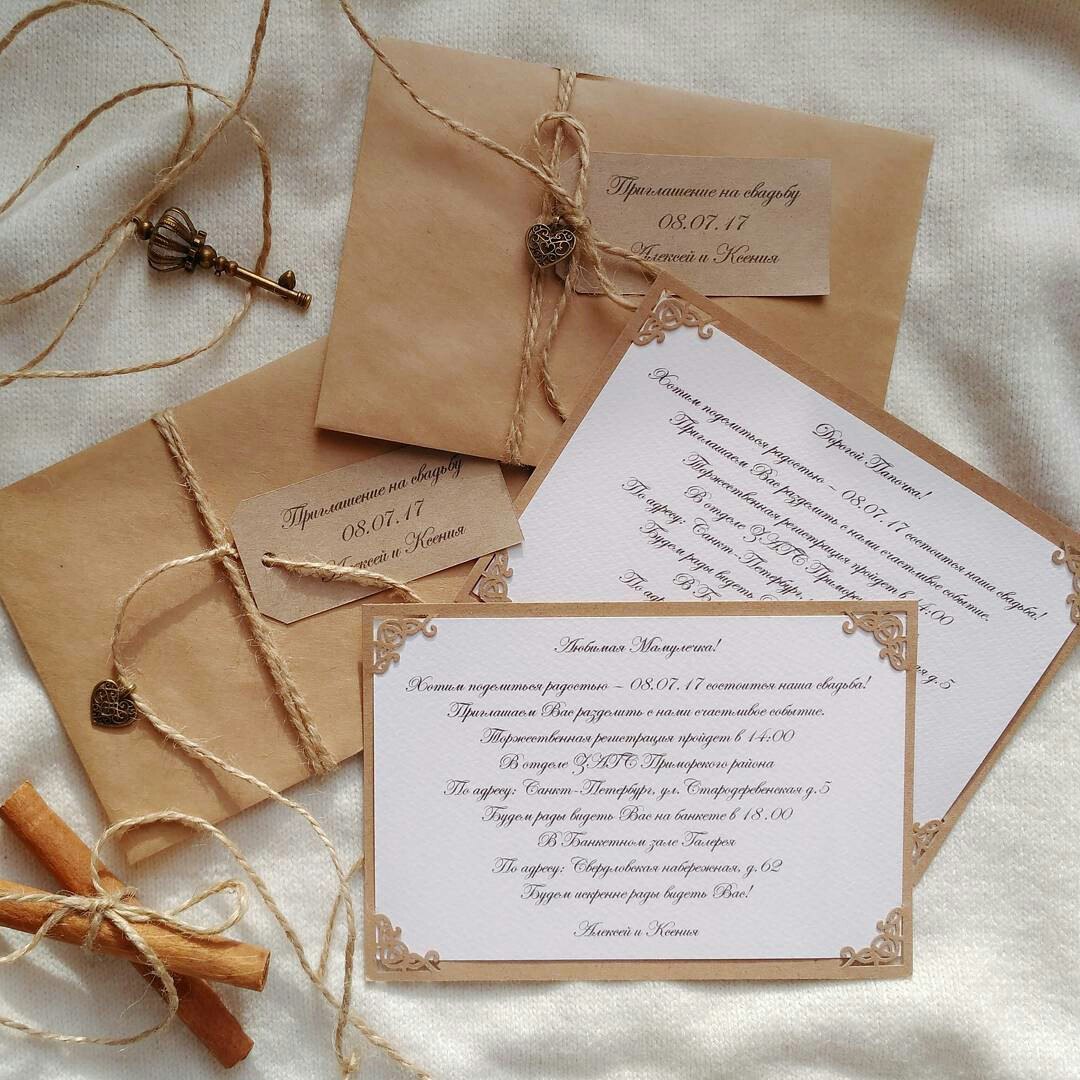 Приглашение на свадьбу
08.07.17
Алексей и Ксения
Приглашение на свадьбу
08.07.17
Алексей и Ксения
Дорогой Папочка!
Хотим поделиться радостью – 08.07.17 состоится наша свадьба!
Приглашаем Вас разделить с нами счастливое событие.
Торжественная регистрация пройдет в 14:00
В отделе ЗАГС Приморского
По адресу: Санкт-Петербург,
Будем рады видеть
В Банк
д. 5
По адрес
Любимая Мамулечка!
Хотим поделиться радостью – 08.07.17 состоится наша свадьба!
Приглашаем Вас разделить с нами счастливое событие.
Торжественная регистрация пройдет в 14:00
В отделе ЗАГС Приморского района
По адресу: Санкт-Петербург, ул. Стародеревенская д.5
Будем рады видеть Вас на банкете в 18.00
В Банкетном зале Галерея
По адресу: Свердловская набережная, д.62
Будем искренне рады видеть Вас!
Алексей и Ксения